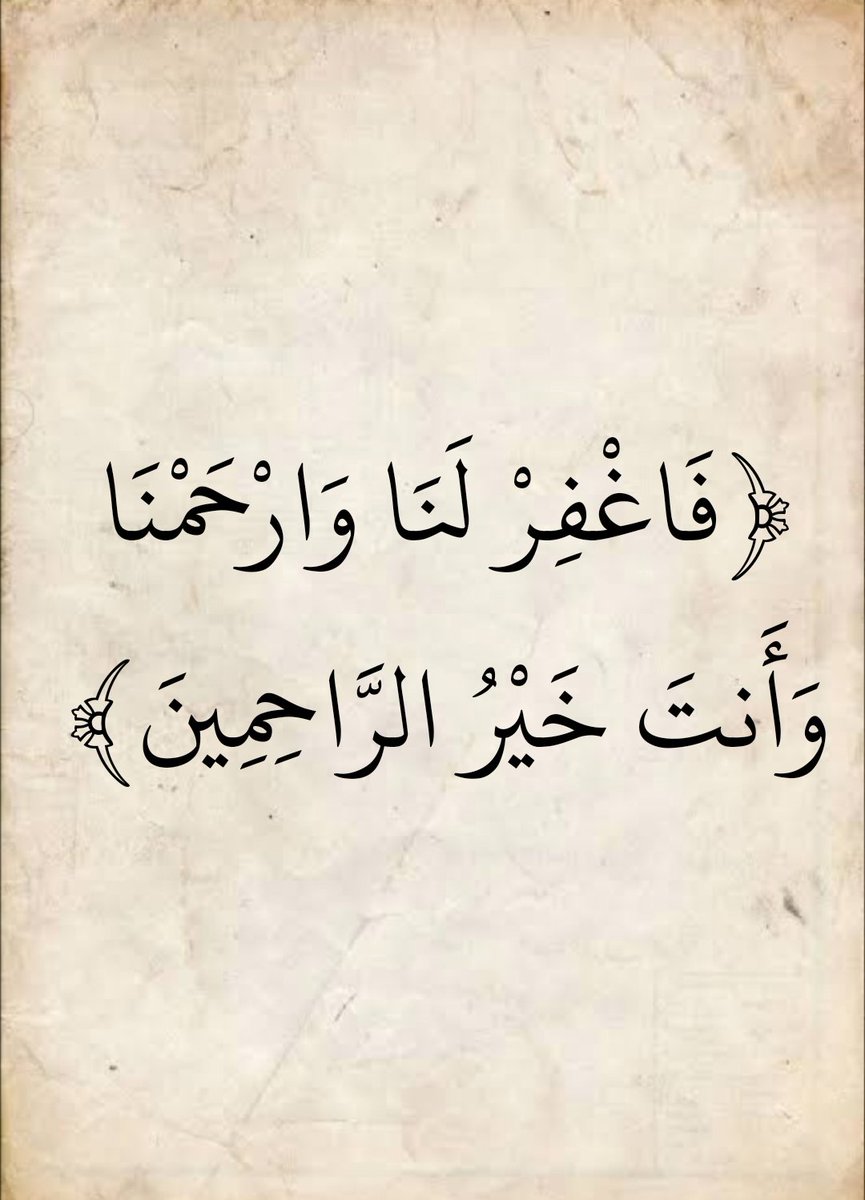 ﴿فَاغْفِرْ لَنَا وَارْحَمْنَا
وَأَنتَ خَيْرُ الرَّاحِمِينَ﴾